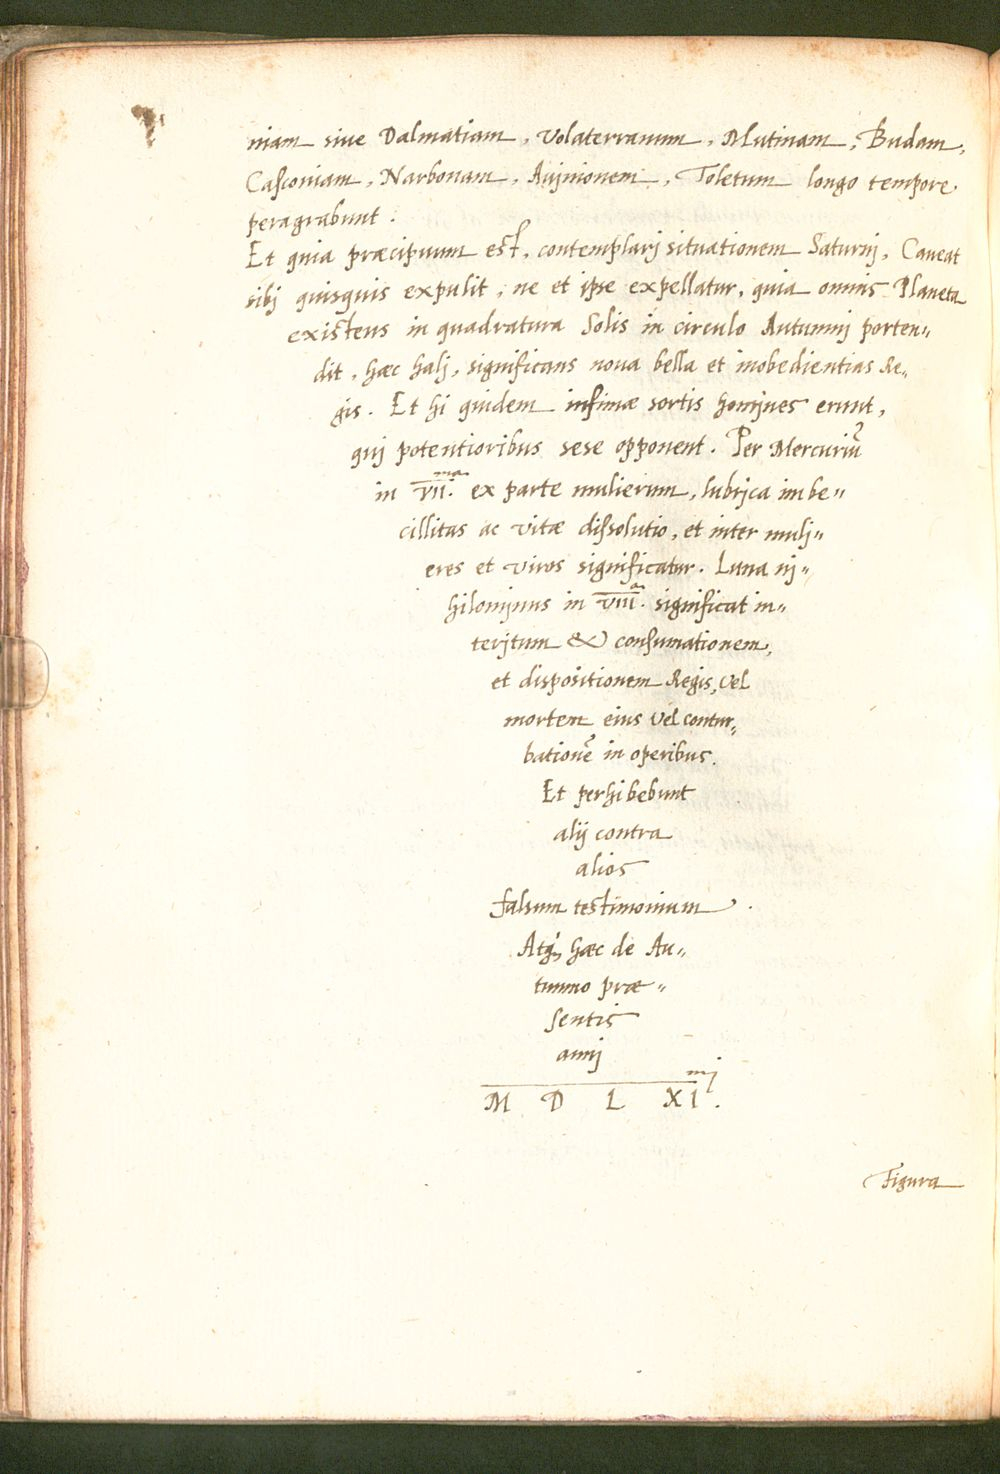 niam siue Dalmatiam, Volaterranum, Mutinam, Budam,
Casconiam, Narbonam, Auinionem, Toletum longo tempore
peragrabunt.
Et quia præcipuum est, contemplarj situationem Saturnj, Caueat
sibj quisquis expulit, ne et ipse expellatur, quia omnis Planeta
existens in quadratura Solis in circulo Autumnj porten„
dit, hæc halj, significans noua bella et inobedientias Re„
gis. Et hi quidem infimæ sortis homines erunt,
quj potentioribus sese opponent. Per Mercuriũ
in VII.ma ex parte mulierum, lubrjca imbe„
cillitas ac vitæ dissolutio, et inter mulj„
eres et viros significatur. Luna nj„
hilominus in VIII.a significat in„
terjtum & consumationem,
et dispositionem Regis, vel
mortem eius vel contur„
bationẽ in operibus.
Et perhibebunt
alij contra
alios
falsum testimonium.
Atq; hæc de Au„
tumno præ„
sentis
annj
M D L XI mj.
Figura